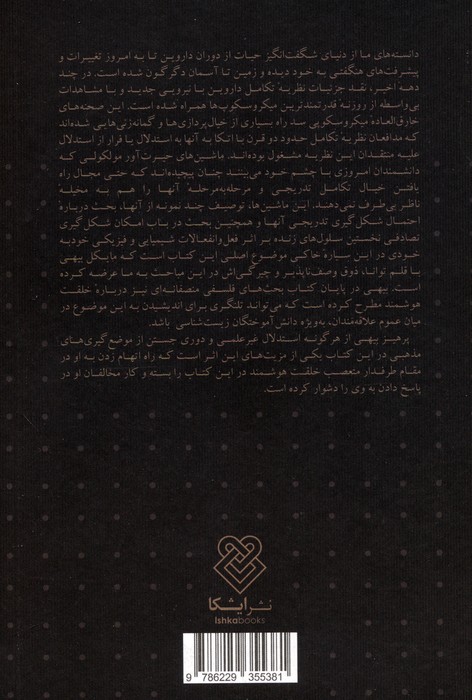 دانسته‌های ما از دنیای شگفت‌انگیز حیات از دوران داروین تا به امروز تغییرات و
پیشرفت‌های هنگفتی به خود دیده و زمین تا آسمان دگرگون شده است. در چند
دهۀ اخیر، نقد جزئیات نظریۀ تکامل داروین با نیرویی جدید و با مشاهدات
بی‌واسطه از روزنۀ قدرتمندترین میکروسکوپ‌ها همراه شده است. این صحنه‌های
خارق‌العادۀ میکروسکوپی سد راه بسیاری از خیال‌پردازی‌ها و گمانه‌زنی‌هایی شده‌اند
که مدافعان نظریۀ تکامل حدود دو قرن با اتکا به آنها به استدلال یا فرار از استدلال
علیه منتقدان این نظریه مشغول بوده‌اند. ماشین‌های حیرت‌آور مولکولی که
دانشمندان امروزی با چشم خود می‌بینند چنان پیچیده‌اند که حتی مجال راه
یافتن خیال تکامل تدریجی و مرحله‌به‌مرحلۀ آنها را هم به مخیلۀ
ناظر بی‌طرف نمی‌دهند. این ماشین‌ها، توصیف چند نمونه از آنها، بحث دربارۀ
احتمال شکل‌گیری تدریجی آنها و همچنین بحث در باب امکان شکل‌گیری
تصادفی نخستین سلول‌های زنده بر اثر فعل‌وانفعالات شیمیایی و فیزیکی خودبه
خودی در این سیارۀ خاکی موضوع اصلی این کتاب است که مایکل بیهی
با قلم توانا، ذوق وصف‌ناپذیر و چیرگی‌اش در این مباحث به ما عرضه کرده
است. بیهی در پایان کتاب بحث‌های فلسفی منصفانه‌ای نیز دربارۀ خلقت
هوشمند مطرح کرده است که می‌تواند تلنگری برای اندیشیدن به این موضوع در
میان عموم علاقه‌مندان، به‌ویژه دانش‌آموختگان زیست‌شناسی باشد.
پرهیز بیهی از هرگونه استدلال غیرعلمی و دوری جستن از موضع‌گیری‌های
مذهبی در این کتاب یکی از مزیت‌های این اثر است که راه اتهام زدن به او در
مقام طرفدار متعصب خلقت هوشمند در این کتاب را بسته و کار مخالفان او در
پاسخ دادن به وی را دشوار کرده است.
نشر ایشکا
Ishkabooks
9 786229 355381